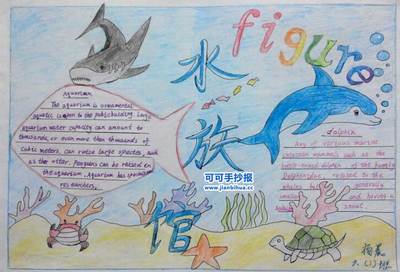 figure
水族馆
Aquarium
The aquarium is ornamental
aquatic is open to the public
aquarium water capacity can amount to
thousands, or even more than thousands of
cubic meters, can raise large species, such
as the otter. Penguins can be raised in
the aquarium. Aquarium has
researchers.
dolphin
Any of various marine
cetacean mammals, such as the
bottle-nosed dolphin, of the family
Delphinidae, related to the
whales but generally
smaller and having a
snout
可可手抄报
www.jianbihua.cc
7.(5)班